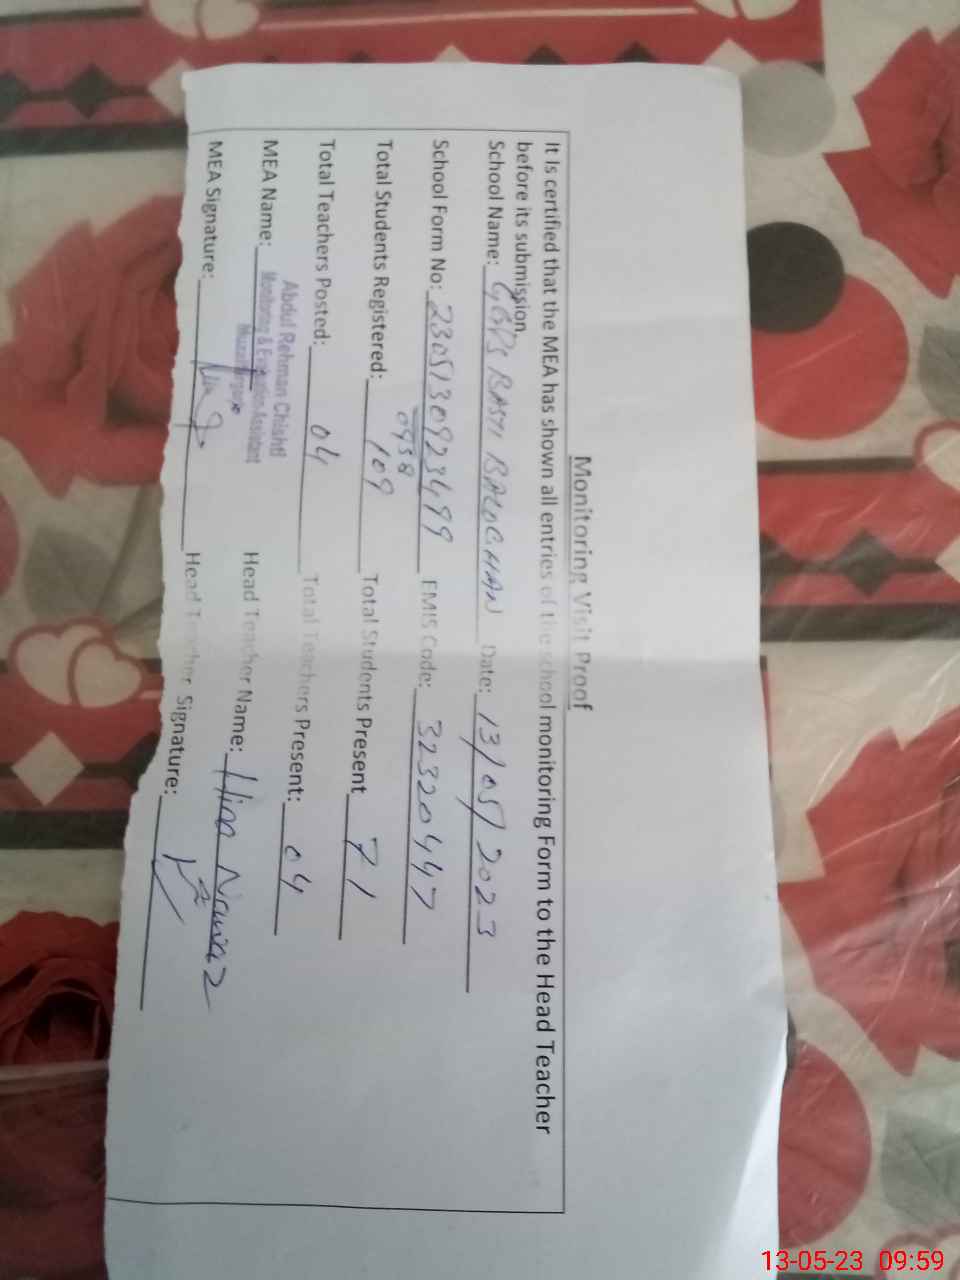 Monitoring Visit Proof
It is certified that the MEA has shown all entries of the school monitoring Form to the Head Teacher
before its submission.
School Name: GGPS BASTI BALOCHAN Date: 13/05/2023
School Form No: 2305130923499 EMIS Code: 32320447
0938
Total Students Registered: 109 Total Students Present 71
Total Teachers Posted: 04 Total Teachers Present: 04
Abdul Rehman Chishti
MEA Name: Monitoring & Evaluation Assistant Head Teacher Name: Hina Nawaz
MEA Signature: Head Teacher Signature:
13-05-23 09:59